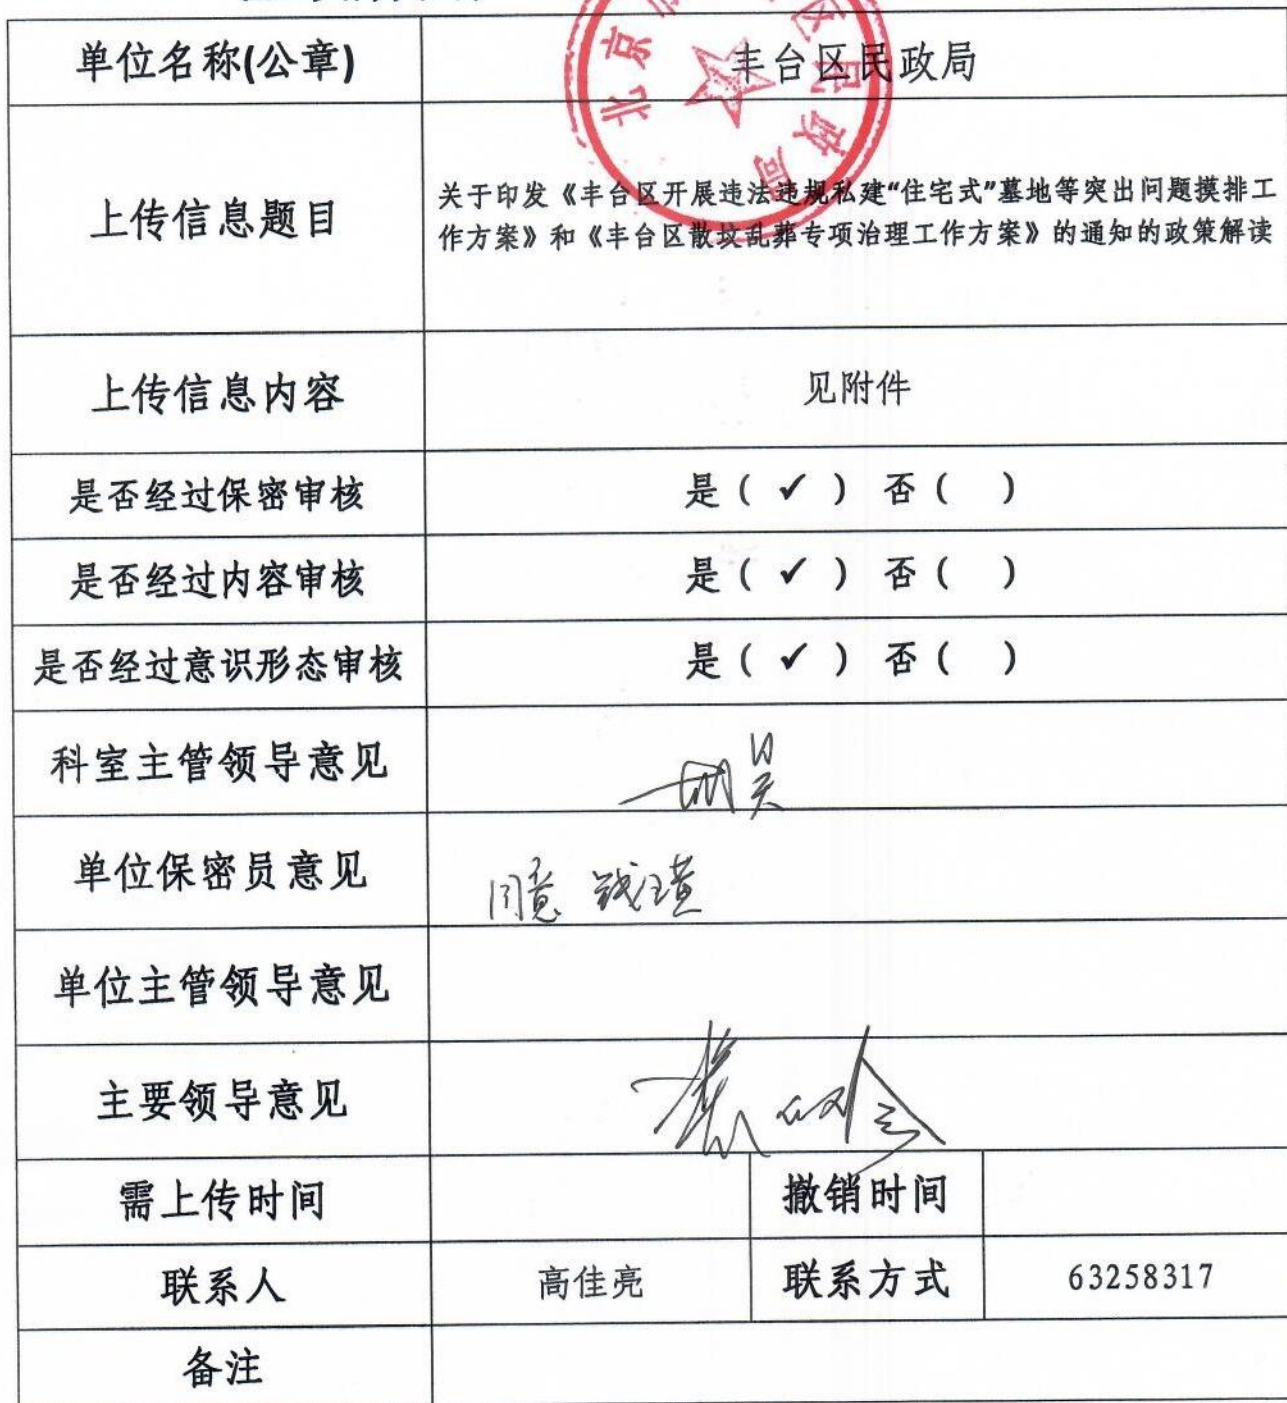 单位名称(公章) 丰台区民政局
北京 区民政局
上传信息题目 关于印发《丰台区开展违法违规私建“住宅式”墓地等突出问题摸排工
作方案》和《丰台区散坟乱葬专项治理工作方案》的通知的政策解读
上传信息内容 见附件
是否经过保密审核 是（ ✓ ） 否（ ）
是否经过内容审核 是（ ✓ ） 否（ ）
是否经过意识形态审核 是（ ✓ ） 否（ ）
科室主管领导意见
单位保密员意见 同意
单位主管领导意见
主要领导意见
需上传时间 撤销时间
联系人 高佳亮 联系方式 63258317
备注